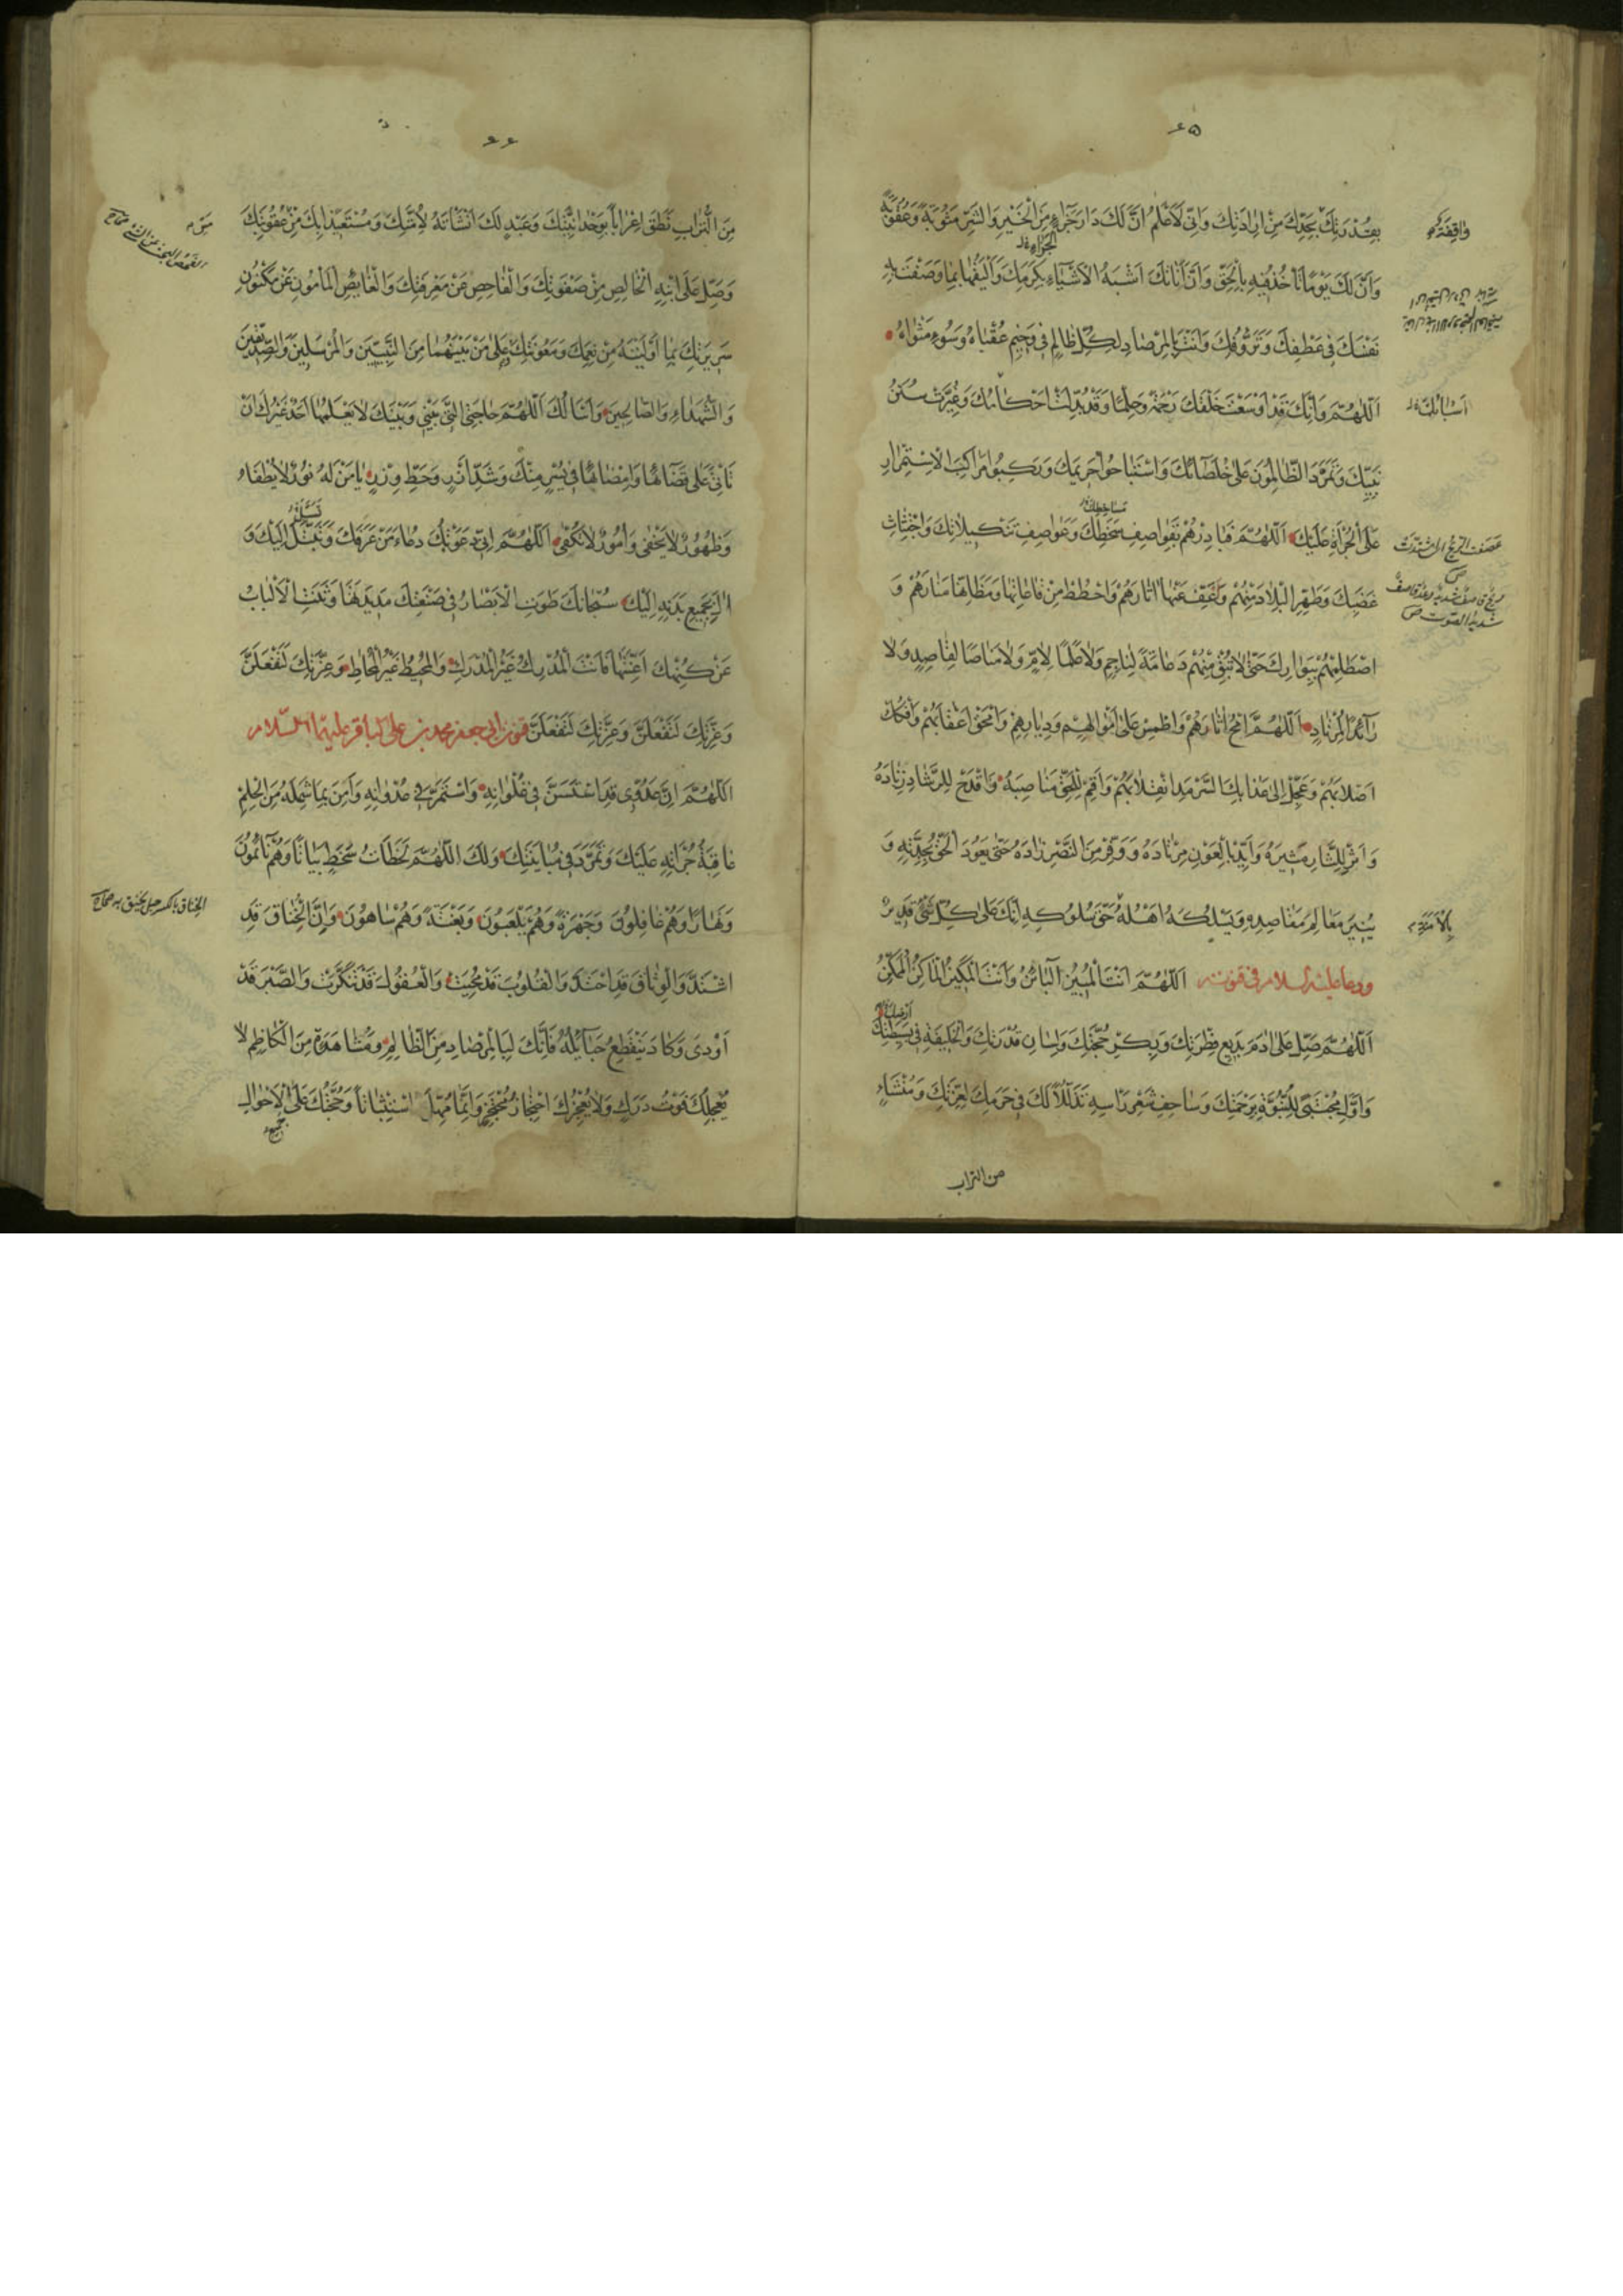 ۶۵
بِقُدْرَتِكَ بِحَدِّكَ مِنْ اِرَادَتِكَ وَاِنّي لَاَعْلَمُ اَنَّ لَكَ دَارَ جَزَاءٍ مِنَ الْخَيْرِ وَالشَّرِّ مَثُوبَةً وَعُقُوبَةً
وَاَنَّ لَكَ يَوْمًا تَأْخُذُ فِيهِ بِالْحَقِّ وَاَنَّ اَنَاتَكَ اَشْبَهُ الْاَشْيَاءِ بِكَرَمِكَ وَاَلْيَقُهَا بِمَا وَصَفْتَ بِهِ
نَفْسَكَ فِي عَطْفِكَ وَتَرَؤُّفِكَ وَاَنْتَ بِالْمِرْصَادِ لِكُلِّ ظَالِمٍ فِي وَخِيمِ عُقْبَاهُ وَسُوءِ مَثْوَاهُ
اَللّٰهُمَّ وَاِنَّكَ قَدْ اَوْسَعْتَ خَلْقَكَ رَحْمَةً وَحِلْمًا وَقَدْ بُدِّلَتْ اَحْكَامُكَ وَغُيِّرَتْ سُنَنُ
نَبِيِّكَ وَتَمَرَّدَ الظَّالِمُونَ عَلَى خُلَصَائِكَ وَاسْتَبَاحُوا حَرِيمَكَ وَرَكِبُوا مَرَاكِبَ الْاِسْتِمْرَارِ
عَلَى الْجُرْأَةِ عَلَيْكَ اَللّٰهُمَّ فَبَادِرْهُمْ بِقَوَاصِفِ سَخَطِكَ وَعَوَاصِفِ تَنْكِيلَاتِكَ وَاجْتِثَاثِ
غَضَبِكَ وَطَهِّرِ الْبِلَادَ مِنْهُمْ وَعَفِّ عَنْهَا اٰثَارَهُمْ وَاحْطُطْ مِنْ قَاعَاتِهَا وَمَظَانِّهَا مَنَارَهُمْ وَ
اصْطَلِمْهُمْ بِبَوَارِكَ حَتّٰى لَا تُبْقِ مِنْهُمْ دِعَامَةً لِنَاجِمٍ وَلَا عَلَمًا لِاٰمٍّ وَلَا مَنَاصًا لِقَاصِدٍ وَلَا
رَائِدًا لِمُرْتَادٍ اَللّٰهُمَّ امْحُ اٰثَارَهُمْ وَاطْمِسْ عَلٰى اَمْوَالِهِمْ وَدِيَارِهِمْ وَامْحَقْ اَعْقَابَهُمْ وَافْكُكْ
اَصْلَابَهُمْ وَعَجِّلْ اِلٰى عَذَابِكَ السَّرْمَدِ انْقِلَابَهُمْ وَاَقِمْ لِلْحَقِّ مَنَاصِبَهُ وَاقْدَحْ لِلرَّشَادِ زِنَادَهُ
وَاَثِرْ لِلثَّارِ مُثِيرَهُ وَاَيِّدْ بِالْعَوْنِ مُرْتَادَهُ وَوَفِّرْ مِنَ النَّصْرِ زَادَهُ حَتّٰى يَعُودَ الْحَقُّ بِجِدَّتِهِ وَ
يُنِيرَ مَعَالِمَ مَقَاصِدِهِ وَيَسْلُكَهُ اَهْلُهُ حَقَّ سُلُوكِهِ اِنَّكَ عَلٰى كُلِّ شَيْءٍ قَدِيرٌ
ودعا عليه السلام في قنوته اَللّٰهُمَّ اَنْتَ الْمُبِينُ الْبَائِنُ وَاَنْتَ الْمَكِينُ الْمَاكِنُ الْمُمَكِّنُ
اَللّٰهُمَّ صَلِّ عَلٰى اٰدَمَ بَدِيعِ فِطْرَتِكَ وَبِكْرِ حُجَّتِكَ وَلِسَانِ قُدْرَتِكَ وَالْخَلِيفَةِ فِي بَسِيطَتِكَ
وَاَوَّلِ مُجْتَبًى لِلنُّبُوَّةِ بِرَحْمَتِكَ وَسَاحِفِ شَعْرِ رَأْسِهِ تَذَلُّلًا لَكَ فِي حَرَمِكَ لِعِزَّتِكَ وَمُنْشَاءٍ
من التراب
۶۶
مِنَ التُّرَابِ نَطَقَ اِعْرَابًا بِوَحْدَانِيَّتِكَ وَعَبْدٍ لَكَ اَنْشَأْتَهُ لِاُمَّتِكَ وَمُسْتَعِيذٍ بِكَ مِنْ عُقُوبَتِكَ
وَصَلِّ عَلَى ابْنِهِ الْخَالِصِ مِنْ صَفْوَتِكَ وَالْفَاحِصِ عَنْ مَعْرِفَتِكَ وَالْغَايِصِ الْمَأْمُونِ عَنْ مَكْنُونِ
سَرِيرَتِكَ بِمَا اَوْلَيْتَهُ مِنْ نِعَمِكَ وَمَعُونَتِكَ وَعَلٰى مَنْ بَيْنَهُمَا مِنَ النَّبِيِّينَ وَالْمُرْسَلِينَ وَالصِّدِّيقِينَ
وَالشُّهَدَاءِ وَالصَّالِحِينَ وَاَسْأَلُكَ اَللّٰهُمَّ حَاجَتِي الَّتِي بَيْنِي وَبَيْنَكَ لَا يَعْلَمُهَا اَحَدٌ غَيْرُكَ اَنْ
تَأْتِيَ عَلٰى قَضَائِهَا وَاِمْضَائِهَا فِي يُسْرٍ مِنْكَ وَشَدِّ اَزْرٍ وَحَطِّ وِزْرٍ يَا مَنْ لَهُ نُورٌ لَا يُطْفَاءُ
وَظُهُورٌ لَا يَخْفٰى وَاُمُورٌ لَا تُكْفٰى اَللّٰهُمَّ اِنّي دَعَوْتُكَ دُعَاءَ مَنْ عَرَفَكَ وَتَبَتَّلَ اِلَيْكَ وَ
اٰلَ بِجَمِيعِ بَدَنِهِ اِلَيْكَ سُبْحَانَكَ طَوَتِ الْاَبْصَارُ فِي صَنْعَتِكَ مَدِيدَتَهَا وَثَنَتِ الْاَلْبَابُ
عَنْ كُنْهِكَ اَعِنَّتَهَا فَاَنْتَ الْمُدْرِكُ غَيْرُ الْمُدْرَكِ وَالْمُحِيطُ غَيْرُ الْمُحَاطِ وَعِزَّتِكَ لَتَفْعَلَنَّ
وَعِزَّتِكَ لَتَفْعَلَنَّ وَعِزَّتِكَ لَتَفْعَلَنَّ قنوت ابي جعفر محمد بن علي الباقر عليهما السلام
اَللّٰهُمَّ اِنَّ عَدُوّي قَدِ اسْتَسَنَّ فِي غُلْوَانِهِ وَاسْتَمَرَّ فِي عُدْوَانِهِ وَاَمِنَ بِمَا شَمِلَهُ مِنَ الْحِلْمِ
عَاقِبَةَ جُرْأَتِهِ عَلَيْكَ وَتَمَرَّدَ فِي مُبَايَنَتِكَ وَلَكَ اللّٰهُمَّ لَحَظَاتُ سَخَطٍ بَيَاتًا وَهُمْ نَائِمُونَ
وَنَهَارًا وَهُمْ غَافِلُونَ وَجَهْرَةً وَهُمْ يَلْعَبُونَ وَبَغْتَةً وَهُمْ سَاهُونَ وَاِنَّ الْخِنَاقَ قَدِ
اشْتَدَّ وَالْوِثَاقَ قَدِ احْتَدَّ وَالْقُلُوبَ قَدْ مُحِيَتْ وَالْعُقُولَ قَدْ تَنَكَّرَتْ وَالصَّبْرَ قَدْ
اَوْدٰى وَكَادَ يَنْقَطِعُ حَبَائِلُهُ فَاِنَّكَ لَبِالْمِرْصَادِ مِنَ الظَّالِمِ وَمُشَاهَدَةٍ مِنَ الْكَاظِمِ لَا
يُعْجِلُكَ فَوْتُ دَرَكٍ وَلَا يُعْجِزُكَ احْتِجَازُ مُحْتَجِزٍ وَاِنَّمَا مُهِّلَ اسْتِثْبَاتًا وَحُجَّتُكَ عَلَى الْاَحْوَالِ
الخناق بالكسر حبل يخنق به صحاح